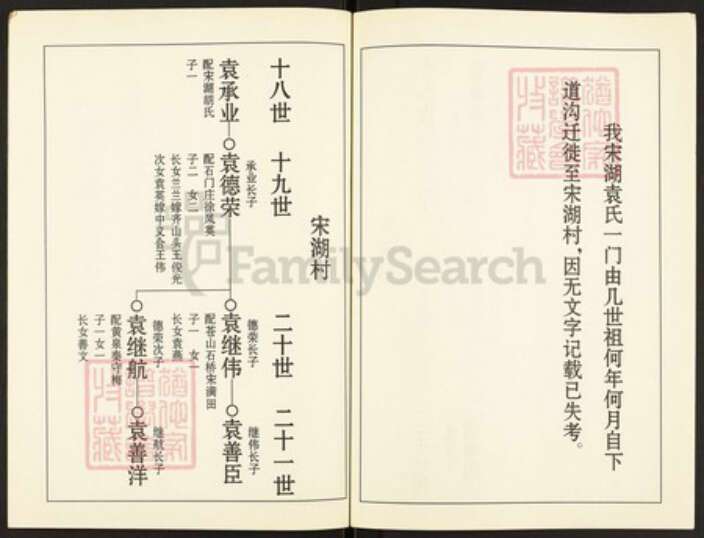 我宋湖袁氏一门由几世祖何年何月自下
道沟迁徙至宋湖村，因无文字记载已失考。
宋湖村
十八世
袁承业
配宋湖胡氏
子一
十九世
承业长子
袁德荣
配石门庄徐凤英
子二 女二
长女兰兰嫁齐山头王俊光
次女袁英嫁中义会王伟
二十世
德荣长子
袁继伟
配苍山石桥宋满田
子一 女一
长女袁燕
德荣次子
袁继航
配黄泉秦守梅
子一 女一
长女善文
二十一世
继伟长子
袁善臣
继航长子
袁善洋
FamilySearch